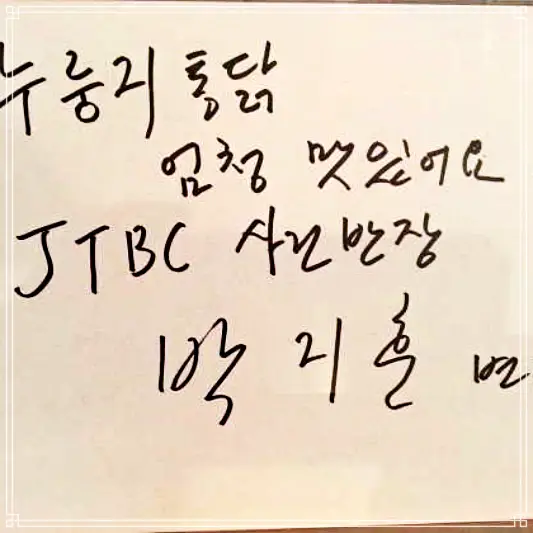 누룽지통닭
엄청 맛있어요
JTBC 사건반장
박지훈 변